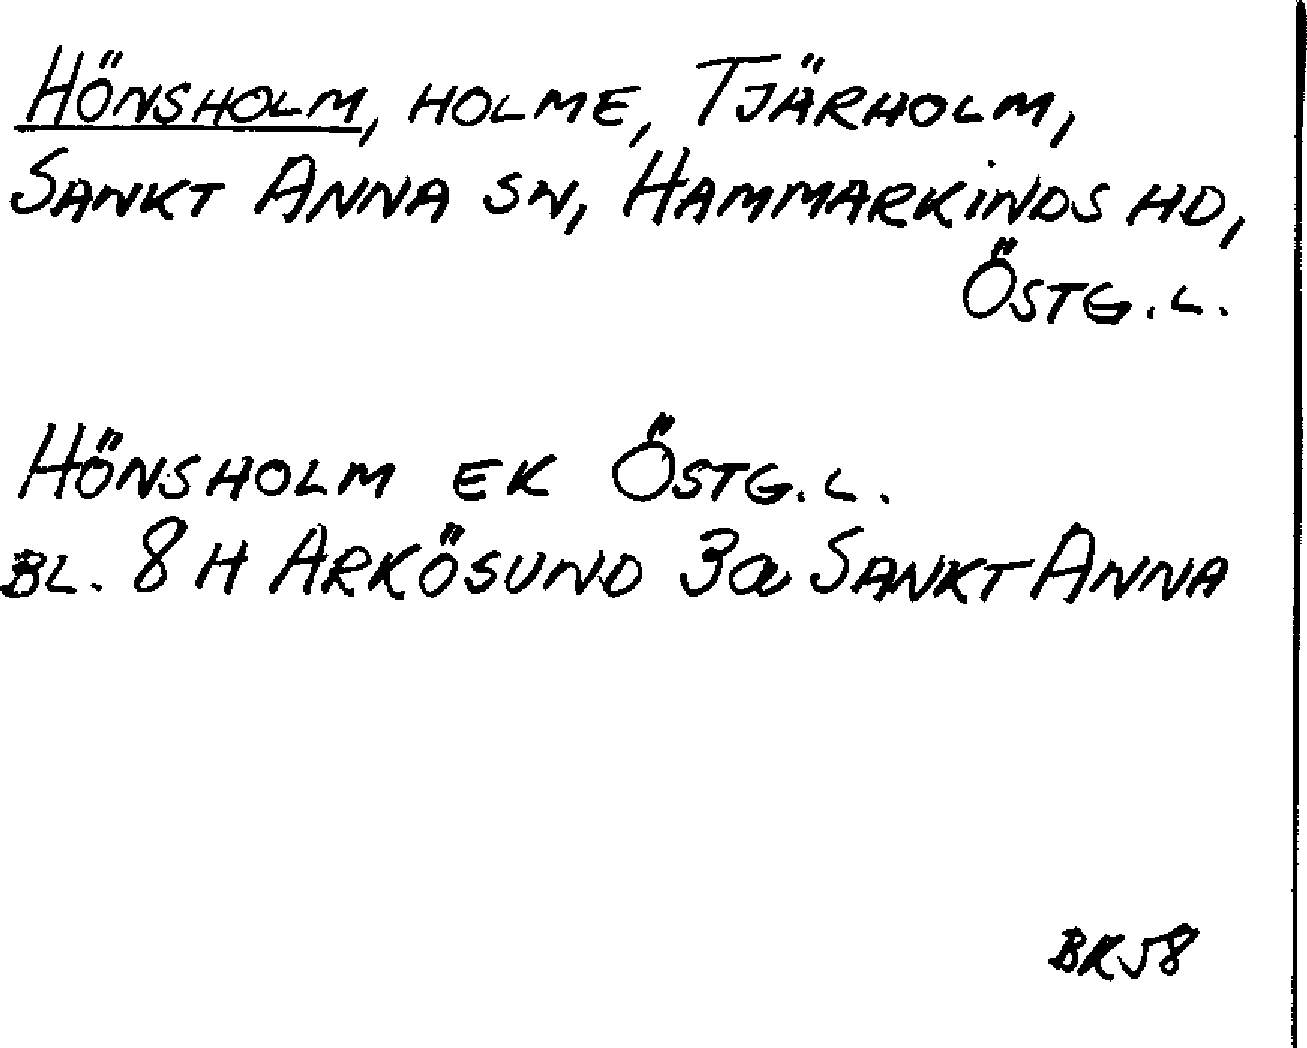 HÖNSHOLM, HOLME, TJÄRHOLM,
SANKT ANNA SN, HAMMARKINDS HD,
ÖSTG.L.
HÖNSHOLM EK ÖSTG.L.
BL. 8 H ARKÖSUND 3a SANKT ANNA
BR58